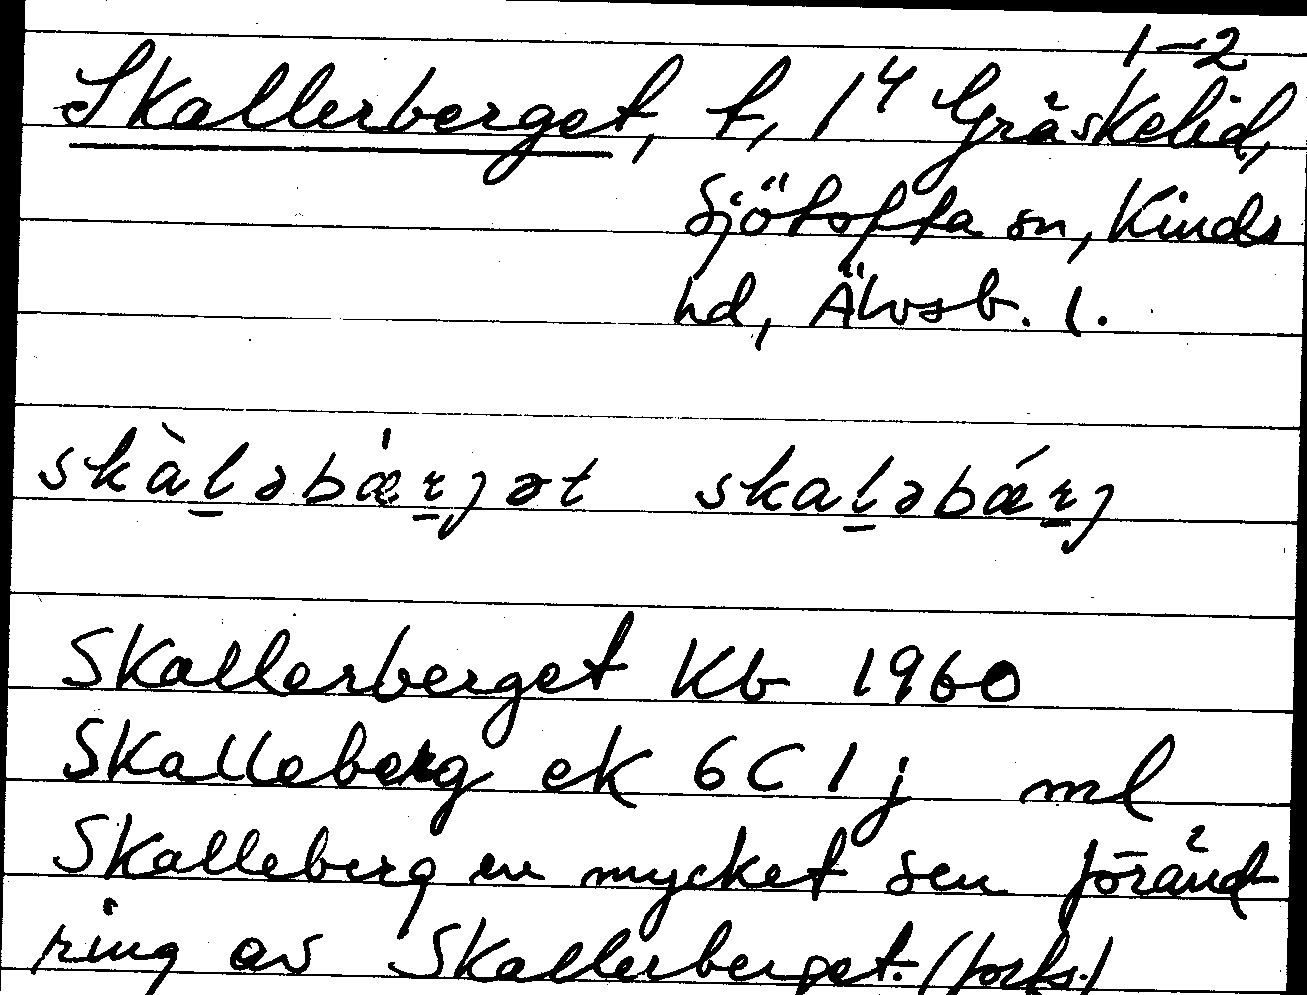 1-2
Skallerberget, t, 1⁴ Gräskelid,
Sjötofta sn, Kinds
hd, Älvsb. l.
skàḻəbæ̀ṟjət skaḻəbǽṟj
Skallerberget Kb 1960
Skalleberg ek 6C1j ml
Skalleberg en mycket sen föränd
ring av Skallerberget. (förf.)